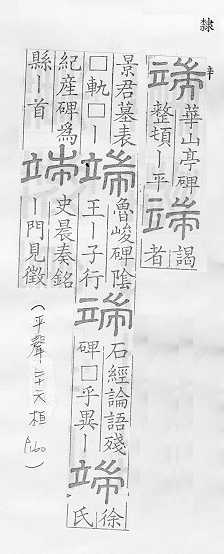 隸
端
華山亭碑
整頓ー平
端
謁
者
景君墓表
□軌□ー
端
魯峻碑陰
王ー子行
端
石經論語殘
碑□乎異ー
端
徐
氏
紀産碑為
縣ー首
端
史晨奏銘
ー門見徵
(平聲二十六桓 P.160)